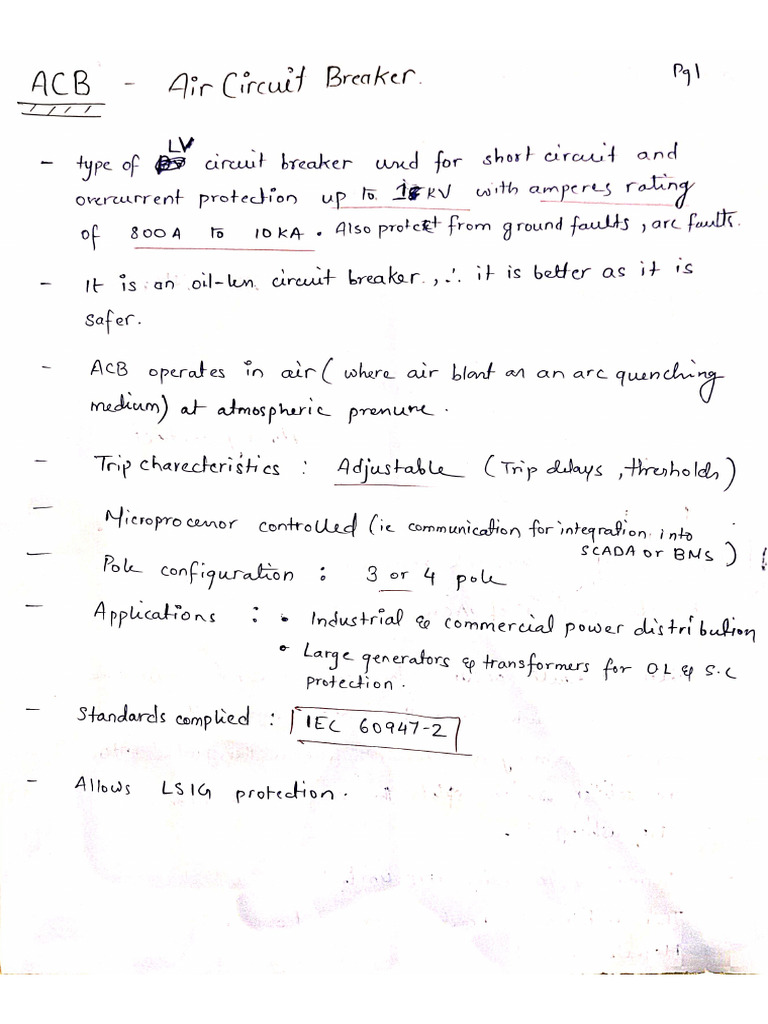 ACB - Air Circuit Breaker. Pg1
LV
- type of circuit breaker used for short circuit and
overcurrent protection up to 1 KV with amperes rating
of 800A to 10KA. Also protect from ground faults, arc faults.
- It is an oil-less circuit breaker, ∴ it is better as it is
safer.
- ACB operates in air (where air blast as an arc quenching
medium) at atmospheric pressure.
- Trip charecteristics : Adjustable (Trip delays, thresholds)
- Microprocessor controlled (ie communication for integration into
SCADA or BMS)
- Pole configuration : 3 or 4 pole
- Applications : • Industrial & commercial power distribution
• Large generators & transformers for OL & S.C
protection.
- Standards complied : IEC 60947-2
- Allows LSIG protection.